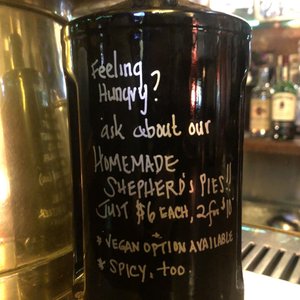 Feeling
Hungry?
ask about our
HOMEMADE
SHEPHERD'S PIES!!
JUST $6 EACH, 2 for $10
* VEGAN OPTION AVAILABLE
* SPICY, too.